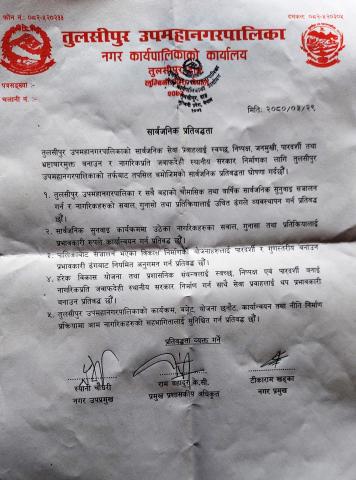 फोन नं.: ०८२-५२०२३३
दमकल: ०८२-५२०३०५
तुलसीपुर उपमहानगरपालिका
नगर कार्यपालिकाको कार्यालय
तुलसीपुर, दाङ
पत्रसङ्ख्या :-
चलानी नं. :-
मिति: २०८०/०५/२९
सार्वजनिक प्रतिबद्धता
तुलसीपुर उपमहानगरपालिकाको सार्वजनिक सेवा प्रवाहलाई स्वच्छ, निष्पक्ष, जनमुखी, पारदर्शी तथा
भ्रष्टाचारमुक्त बनाउन र नागरिकप्रति जवाफदेही स्थानीय सरकार निर्माणका लागि तुलसीपुर
उपमहानगरपालिकाको तर्फबाट तपसिल बमोजिमको सार्वजनिक प्रतिबद्धता घोषणा गर्दछौं।
१. तुलसीपुर उपमहानगरपालिका र सबै वडाको चौमासिक तथा वार्षिक सार्वजनिक सुनुवाइ सञ्चालन
गर्न र नागरिकहरुको सवाल, गुनासो तथा प्रतिक्रियालाई उचित ढंगले व्यवस्थापन गर्न प्रतिबद्ध
छौं।
२. सार्वजनिक सुनुवाइ कार्यक्रममा उठेका नागरिकहरुको सवाल, गुनासा तथा प्रतिक्रियालाई
प्रभावकारी रुपले कार्यान्वयन गर्न प्रतिबद्ध छौं।
३. पालिकाबाट सञ्चालन भएका विकास निर्माणका योजनाहरुलाई पारदर्शी र गुणस्तरीय बनाउन
प्रभावकारी ढंगबाट नियमित अनुगमन गर्न प्रतिबद्ध छौं।
४. हरेक विकास योजना तथा प्रशासनिक संयन्त्रलाई स्वच्छ, निष्पक्ष एवं पारदर्शी बनाई
नागरिकप्रति जवाफदेही स्थानीय सरकार निर्माण गर्न साथै सेवा प्रवाहलाई थप प्रभावकारी
बनाउन प्रतिबद्ध छौं।
५. तुलसीपुर उपमहानगरपालिकाको कार्यक्रम, बजेट, योजना छनौट, कार्यान्वयन तथा नीति निर्माण
प्रक्रियामा आम नागरिकहरुको सहभागितालाई सुनिश्चित गर्न प्रतिबद्ध छौं।
प्रतिबद्धता व्यक्त गर्ने
स्यानी चौधरी
नगर उपप्रमुख
राम बहादुर के.सी.
प्रमुख प्रशासकीय अधिकृत
टीकाराम खड्का
नगर प्रमुख